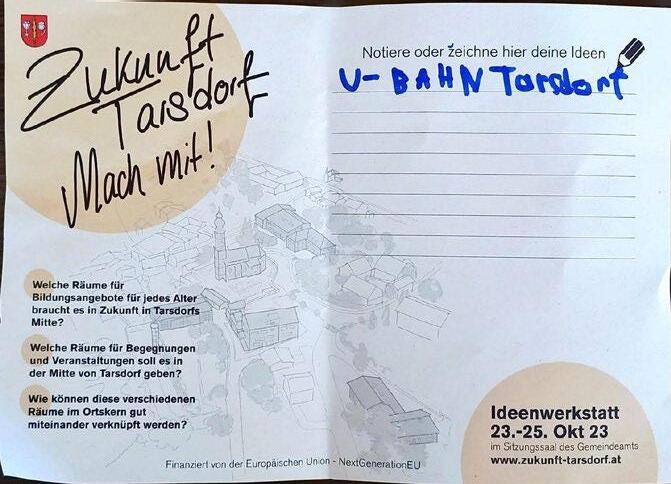 Zukunft
Tarsdorf
Mach mit!
Welche Räume für
Bildungsangebote für jedes Alter
braucht es in Zukunft in Tarsdorfs
Mitte?
Welche Räume für Begegnungen
und Veranstaltungen soll es in
der Mitte von Tarsdorf geben?
Wie können diese verschiedenen
Räume im Ortskern gut
miteinander verknüpft werden?
Finanziert von der Europäischen Union - NextGenerationEU
Notiere oder zeichne hier deine Ideen
U-BAHN Tarsdorf
Ideenwerkstatt
23.-25. Okt 23
im Sitzungssaal des Gemeindeamts
www.zukunft-tarsdorf.at